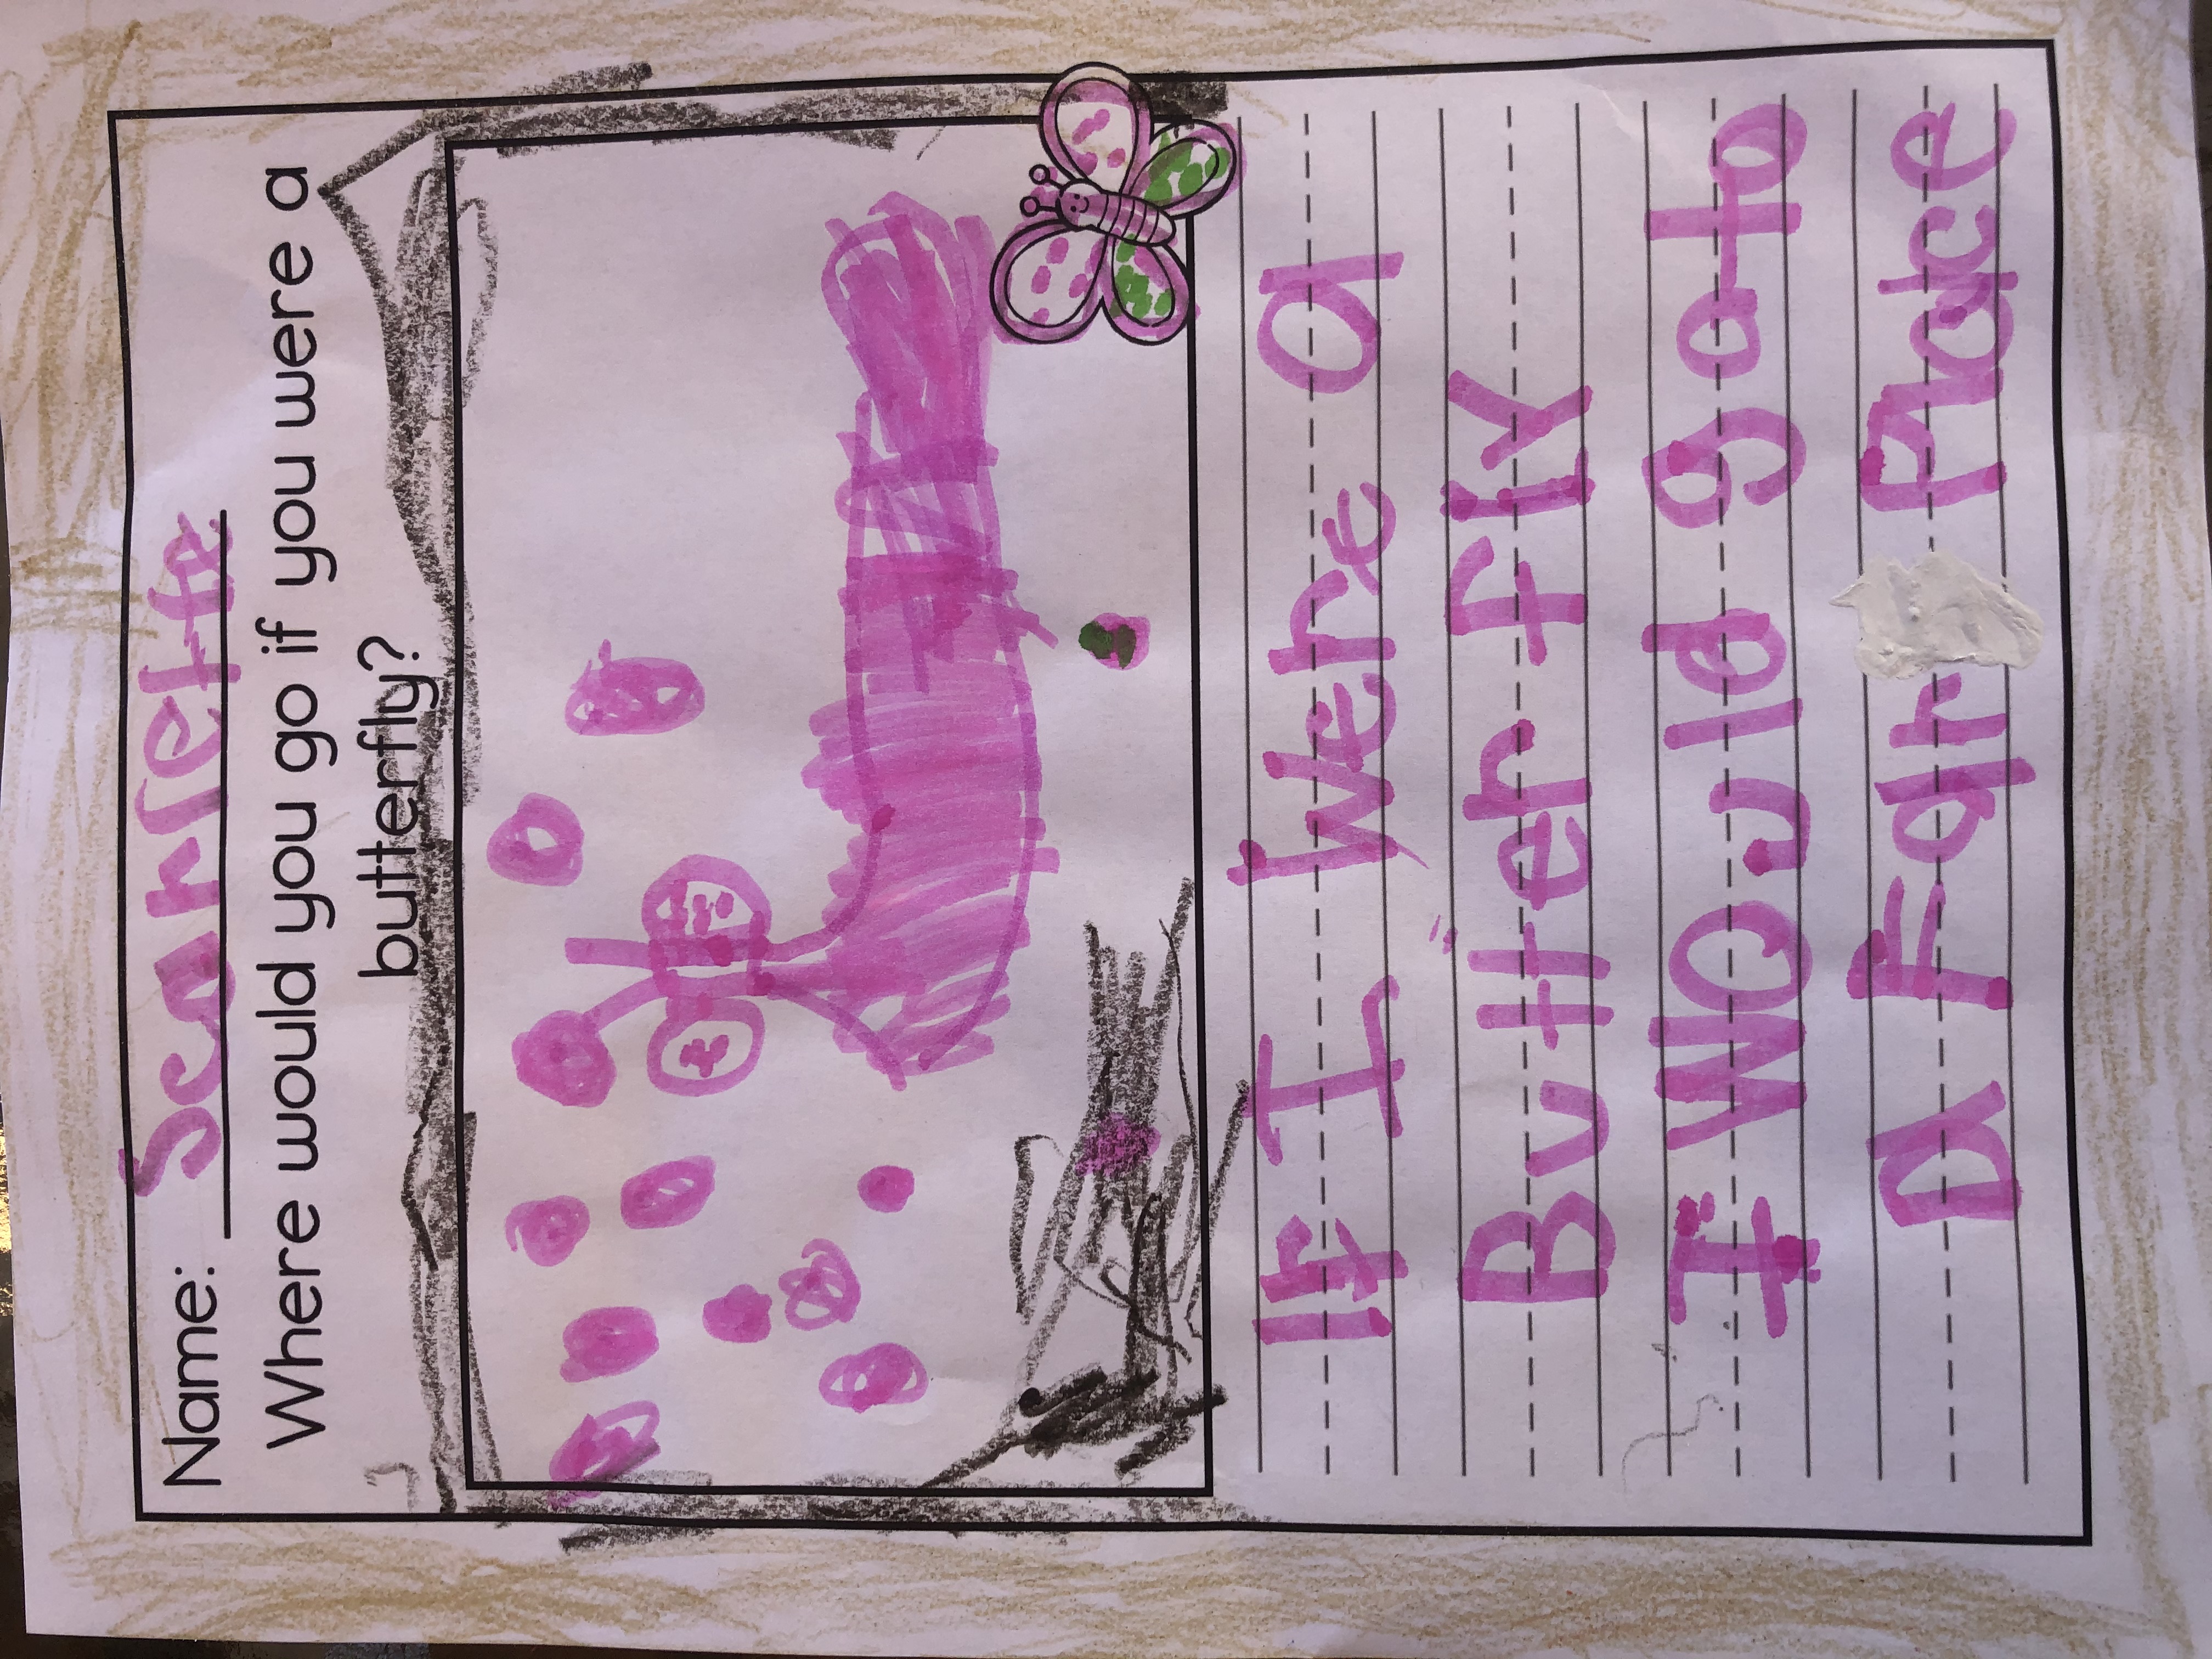 Name: Scarlette
Where would you go if you were a
butterfly?
If I were a
Butter fly
I Would go to
a Far Place